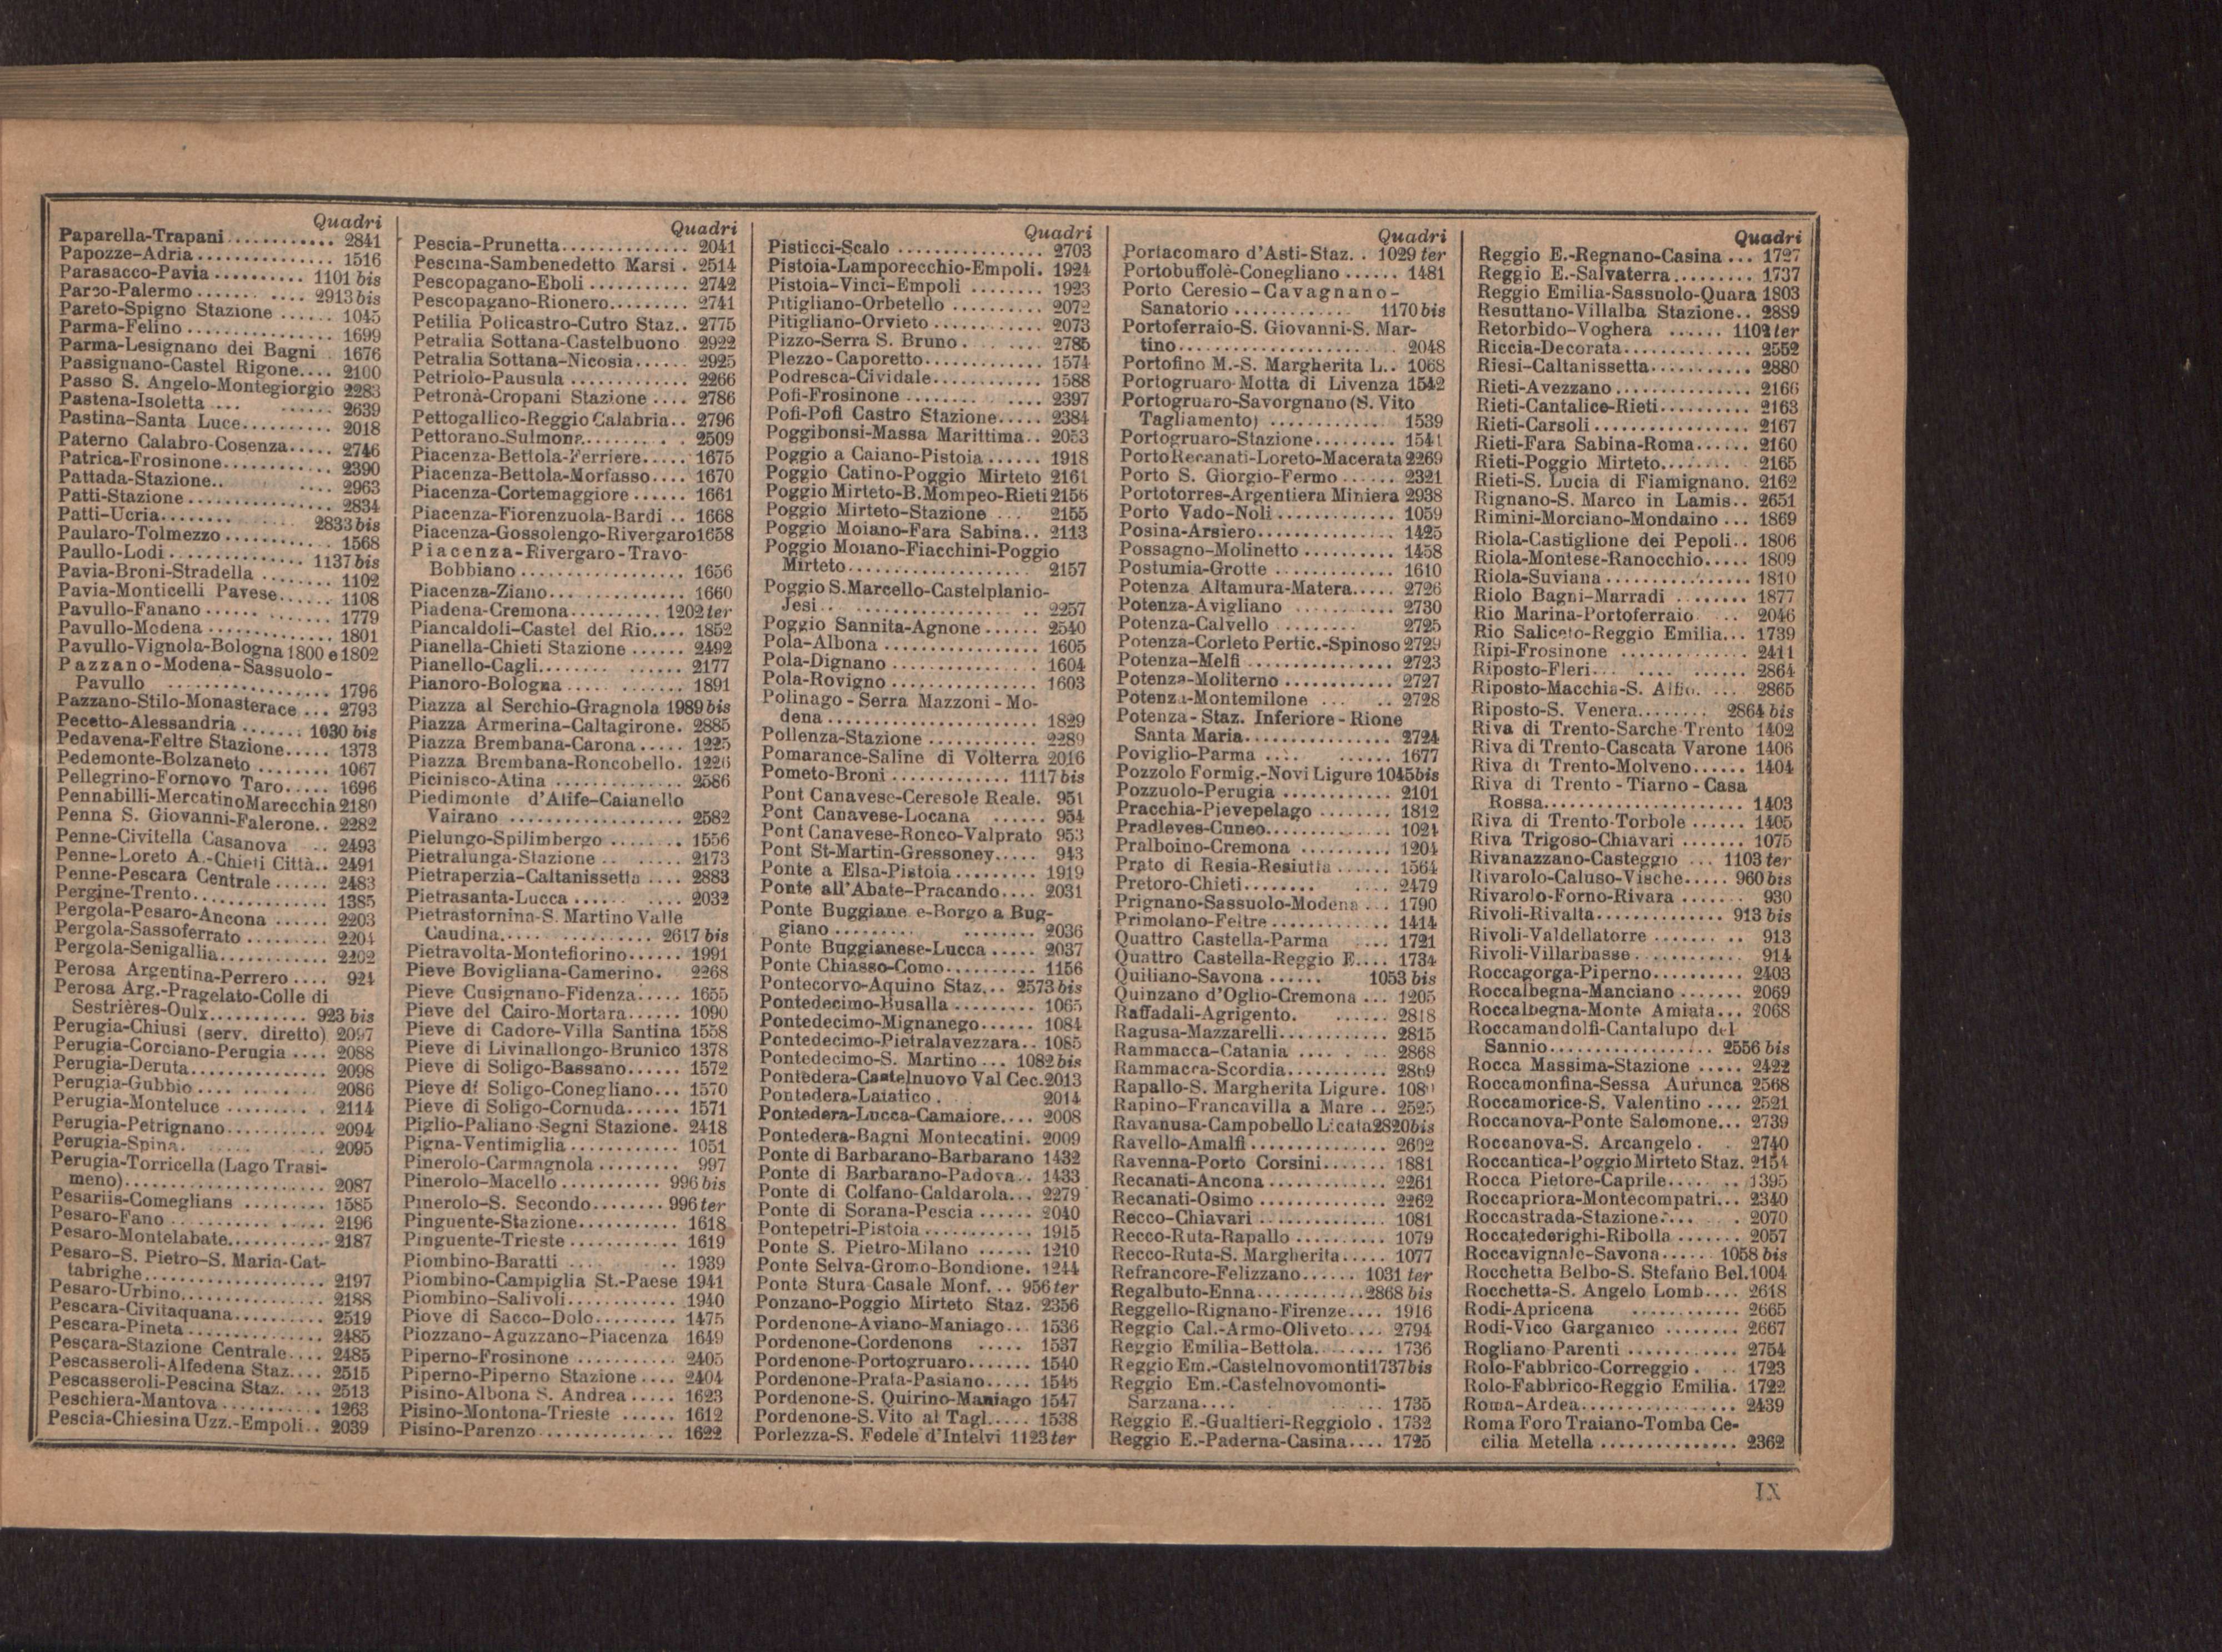 Quadri
Paparella-Trapani............ 2841
Papozze-Adria............... 1516
Parasacco-Pavia.......... 1101 bis
Parco-Palermo....... .... 2913 bis
Pareto-Spigno Stazione...... 1045
Parma-Felino................ 1699
Parma-Lesignano dei Bagni 1676
Passignano-Castel Rigone.... 2100
Passo S. Angelo-Montegiorgio 2283
Pastena-Isoletta... ...... 2639
Pastina-Santa Luce.......... 2018
Paterno Calabro-Cosenza..... 2746
Patrica-Frosinone............ 2390
Pattada-Stazione.. .... 2963
Patti-Stazione................ 2834
Patti-Ucria........ 2833 bis
Paularo-Tolmezzo............ 1568
Paullo-Lodi............... 1137 bis
Pavia-Broni-Stradella........ 1102
Pavia-Monticelli Pavese...... 1108
Pavullo-Fanano...... ....... 1779
Pavullo-Modena.............. 1801
Pavullo-Vignola-Bologna 1800 e 1802
Pazzano-Modena-Sassuolo-
Pavullo.................. 1796
Pazzano-Stilo-Monasterace... 2793
Pecetto-Alessandria....... 1030 bis
Pedavena-Feltre Stazione..... 1373
Pedemonte-Bolzaneto........ 1067
Pellegrino-Fornovo Taro..... 1696
Pennabilli-Mercatino Marecchia 2180
Penna S. Giovanni-Falerone.. 2282
Penne-Civitella Casanova .. 2493
Penne-Loreto A.-Chieti Città.. 2491
Penne-Pescara Centrale...... 2483
Pergine-Trento............... 1385
Pergola-Pesaro-Ancona...... 2203
Pergola-Sassoferrato......... 2204
Pergola-Senigallia............ 2202
Perosa Argentina-Perrero.... 924
Perosa Arg.-Pragelato-Colle di
Sestrières-Oulx........... 923 bis
Perugia-Chiusi (serv. diretto) 2097
Perugia-Corciano-Perugia.... 2088
Perugia-Deruta............... 2098
Perugia-Gubbio.... 2086
Perugia-Monteluce.......... 2114
Perugia-Petrignano........... 2094
Perugia-Spina. .. 2095
Perugia-Torricella (Lago Trasi-
meno)...................... 2087
Pesariis-Comeglians......... 1585
Pesaro-Fano............... 2196
Pesaro-Montelabate........... 2187
Pesaro-S. Pietro-S. Maria-Cat-
tabrighe.................... 2197
Pesaro-Urbino................ 2188
Pescara-Civitaquana.......... 2519
Pescara-Pineta............... 2485
Pescara-Stazione Centrale.... 2485
Pescasseroli-Alfedena Staz.... 2515
Pescasseroli-Pescina Staz. ... 2513
Peschiera-Mantova........... 1263
Pescia-Chiesina Uzz.-Empoli.. 2039
Quadri
Pescia-Prunetta.............. 2041
Pescina-Sambenedetto Marsi. 2514
Pescopagano-Eboli........... 2742
Pescopagano-Rionero......... 2741
Petilia Policastro-Cutro Staz.. 2775
Petralia Sottana-Castelbuono 2922
Petralia Sottana-Nicosia...... 2925
Petriolo-Pausula............. 2266
Petronà-Cropani Stazione.... 2786
Pettogallico-Reggio Calabria.. 2796
Pettorano-Sulmona......... . 2509
Piacenza-Bettola-Ferriere..... 1675
Piacenza-Bettola-Morfasso.... 1670
Piacenza-Cortemaggiore...... 1661
Piacenza-Fiorenzuola-Bardi.. 1668
Piacenza-Gossolengo-Rivergaro 1658
Piacenza-Rivergaro-Travo-
Bobbiano.................. 1656
Piacenza-Ziano.............. 1660
Piadena-Cremona.......... 1202 ter
Piancaldoli-Castel del Rio.... 1852
Pianella-Chieti Stazione...... 2492
Pianello-Cagli........ ...... 2177
Pianoro-Bologna..... ....... 1891
Piazza al Serchio-Gragnola 1989 bis
Piazza Armerina-Caltagirone. 2885
Piazza Brembana-Carona..... 1225
Piazza Brembana-Roncobello. 1226
Picinisco-Atina.............. 2586
Piedimonte d'Alife-Caianello
Vairano.................. 2582
Pielungo-Spilimbergo........ 1556
Pietralunga-Stazione.. ..... 2173
Pietraperzia-Caltanissetta.... 2883
Pietrasanta-Lucca...... .... 2032
Pietrastornina-S. Martino Valle
Caudina..... .......... 2617 bis
Pietravolta-Montefiorino...... 1991
Pieve Bovigliana-Camerino. 2268
Pieve Cusignano-Fidenza..... 1655
Pieve del Cairo-Mortara...... 1090
Pieve di Cadore-Villa Santina 1558
Pieve di Livinallongo-Brunico 1378
Pieve di Soligo-Bassano...... 1572
Pieve di Soligo-Conegliano... 1570
Pieve di Soligo-Cornuda...... 1571
Piglio-Paliano-Segni Stazione. 2418
Pigna-Ventimiglia............ 1051
Pinerolo-Carmagnola......... 997
Pinerolo-Macello........... 996 bis
Pinerolo-S. Secondo........ 996 ter
Pinguente-Stazione........... 1618
Pinguente-Trieste............ 1619
Piombino-Baratti.... .. 1939
Piombino-Campiglia St.-Paese 1941
Piombino-Salivoli............ 1940
Piove di Sacco-Dolo......... 1475
Piozzano-Agazzano-Piacenza 1649
Piperno-Frosinone........... 2405
Piperno-Piperno Stazione.... 2404
Pisino-Albona S. Andrea..... 1623
Pisino-Montona-Trieste...... 1612
Pisino-Parenzo.............. 1622
Quadri
Pisticci-Scalo............... 2703
Pistoia-Lamporecchio-Empoli. 1924
Pistoia-Vinci-Empoli........ 1923
Pitigliano-Orbetello.......... 2072
Pitigliano-Orvieto............ 2073
Pizzo-Serra S. Bruno. ..... 2785
Plezzo-Caporetto............. 1574
Podresca-Cividale............ 1588
Pofi-Frosinone........ .... 2397
Pofi-Pofi Castro Stazione..... 2384
Poggibonsi-Massa Marittima.. 2053
Poggio a Caiano-Pistoia...... 1918
Poggio Catino-Poggio Mirteto 2161
Poggio Mirteto-B. Mompeo-Rieti 2156
Poggio Mirteto-Stazione... 2155
Poggio Moiano-Fara Sabina.. 2113
Poggio Moiano-Fiacchini-Poggio
Mirteto.................... 2157
Poggio S. Marcello-Castelplanio-
Jesi.. .................. 2257
Poggio Sannita-Agnone...... 2540
Pola-Albona................. 1605
Pola-Dignano................ 1604
Pola-Rovigno................ 1603
Polinago-Serra Mazzoni-Mo-
dena....................... 1829
Pollenza-Stazione............ 2289
Pomarance-Saline di Volterra 2016
Pometo-Broni............. 1117 bis
Pont Canavese-Ceresole Reale. 951
Pont Canavese-Locana...... 954
Pont Canavese-Ronco-Valprato 953
Pont St-Martin-Gressoney..... 943
Ponte a Elsa-Pistoia.......... 1919
Ponte all'Abate-Pracando.... 2031
Ponte Buggianese-Borgo a Bug-
giano......... ........ 2036
Ponte Buggianese-Lucca..... 2037
Ponte Chiasso-Como.......... 1156
Pontecorvo-Aquino Staz... 2573 bis
Pontedecimo-Busalla......... 1065
Pontedecimo-Mignanego...... 1084
Pontedecimo-Pietralavezzara.. 1085
Pontedecimo-S. Martino... 1082 bis
Pontedera-Castelnuovo Val Cec. 2013
Pontedera-Laiatico. 2014
Pontedera-Lucca-Camaiore.... 2008
Pontedera-Bagni Montecatini. 2009
Ponte di Barbarano-Barbarano 1432
Ponte di Barbarano-Padova.. 1433
Ponte di Colfano-Caldarola... 2279
Ponte di Sorana-Pescia...... 2040
Pontepetri-Pistoia............ 1915
Ponte S. Pietro-Milano...... 1210
Ponte Selva-Gromo-Bondione. 1244
Ponte Stura-Casale Monf... 956 ter
Ponzano-Poggio Mirteto Staz. 2356
Pordenone-Aviano-Maniago... 1536
Pordenone-Cordenons..... 1537
Pordenone-Portogruaro....... 1540
Pordenone-Prata-Pasiano..... 1546
Pordenone-S. Quirino-Maniago 1547
Pordenone-S. Vito al Tagl..... 1538
Porlezza-S. Fedele d'Intelvi 1123 ter
Quadri
Portacomaro d'Asti-Staz.. 1029 ter
Portobuffolè-Conegliano...... 1481
Porto Ceresio-Cavagnano-
Sanatorio............. 1170 bis
Portoferraio-S. Giovanni-S. Mar-
tino........................ 2048
Portofino M.-S. Margherita L.. 1068
Portogruaro-Motta di Livenza 1542
Portogruaro-Savorgnano (S. Vito
Tagliamento)............. 1539
Portogruaro-Stazione......... 1541
Porto Recanati-Loreto-Macerata 2269
Porto S. Giorgio-Fermo...... 2321
Portotorres-Argentiera Miniera 2938
Porto Vado-Noli............. 1059
Posina-Arsiero............... 1425
Possagno-Molinetto.......... 1458
Postumia-Grotte............. 1610
Potenza Altamura-Matera..... 2726
Potenza-Avigliano........... 2730
Potenza-Calvello........ 2725
Potenza-Corleto Pertic.-Spinoso 2729
Potenza-Melfi................ 2723
Potenza-Moliterno............ 2727
Potenza-Montemilone... .. 2728
Potenza-Staz. Inferiore-Rione
Santa Maria................ 2724
Poviglio-Parma.... ...... 1677
Pozzolo Formig.-Novi Ligure 1045 bis
Pozzuolo-Perugia............ 2101
Pracchia-Pievepelago........ 1812
Pradleves-Cuneo............. 1024
Pralboino-Cremona.......... 1204
Prato di Resia-Resiutta...... 1564
Pretoro-Chieti........ .... 2479
Prignano-Sassuolo-Modena... 1790
Primolano-Feltre............. 1414
Quattro Castella-Parma .... 1721
Quattro Castella-Reggio E.... 1734
Quiliano-Savona...... 1053 bis
Quinzano d'Oglio-Cremona... 1205
Raffadali-Agrigento. ...... 2818
Ragusa-Mazzarelli............ 2815
Rammacca-Catania.... . ... 2868
Rammacca-Scordia........... 2869
Rapallo-S. Margherita Ligure.
Rapino-Francavilla a Mare.. 2525
Ravanusa-Campobello Licata 2820 bis
Ravello-Amalfi............... 2602
Ravenna-Porto Corsini....... 1881
Recanati-Ancona............. 2261
Recanati-Osimo.............. 2262
Recco-Chiavari.............. 1081
Recco-Ruta-Rapallo.......... 1079
Recco-Ruta-S. Margherita..... 1077
Refrancore-Felizzano...... 1031 ter
Regalbuto-Enna............ 2868 bis
Reggello-Rignano-Firenze.... 1916
Reggio Cal.-Armo-Oliveto.... 2794
Reggio Emilia-Bettola........ 1736
Reggio Em.-Castelnovomonti 1737 bis
Reggio Em.-Castelnovomonti-
Sarzana.... ..... 1735
Reggio E.-Gualtieri-Reggiolo. 1732
Reggio E.-Paderna-Casina.... 1725
Quadri
Reggio E.-Regnano-Casina... 1727
Reggio E.-Salvaterra......... 1737
Reggio Emilia-Sassuolo-Quara 1803
Resuttano-Villalba Stazione.. 2889
Retorbido-Voghera...... 1102 ter
Riccia-Decorata.............. 2552
Riesi-Caltanissetta........... 2880
Rieti-Avezzano.............. 2166
Rieti-Cantalice-Rieti.......... 2163
Rieti-Carsoli................. 2167
Rieti-Fara Sabina-Roma...... 2160
Rieti-Poggio Mirteto........ 2165
Rieti-S. Lucia di Fiamignano. 2162
Rignano-S. Marco in Lamis.. 2651
Rimini-Morciano-Mondaino... 1869
Riola-Castiglione dei Pepoli.. 1806
Riola-Montese-Ranocchio..... 1809
Riola-Suviana................ 1810
Riolo Bagni-Marradi........ 1877
Rio Marina-Portoferraio .. 2046
Rio Saliceto-Reggio Emilia... 1739
Ripi-Frosinone.............. 2411
Riposto-Fleri... .... ...... 2864
Riposto-Macchia-S. Alfio. ... 2865
Riposto-S. Venera........ 2864 bis
Riva di Trento-Sarche-Trento 1402
Riva di Trento-Cascata Varone 1406
Riva di Trento-Molveno...... 1404
Riva di Trento-Tiarno-Casa
Rossa...................... 1403
Riva di Trento-Torbole...... 1405
Riva Trigoso-Chiavari....... 1075
Rivanazzano-Casteggio... 1103 ter
Rivarolo-Caluso-Vische..... 960 bis
Rivarolo-Forno-Rivara....... 930
Rivoli-Rivalta.............. 913 bis
Rivoli-Valdellatorre....... .. 913
Rivoli-Villarbasse............ 914
Roccagorga-Piperno.......... 2403
Roccalbegna-Manciano....... 2069
Roccalbegna-Monte Amiata... 2068
Roccamandolfi-Cantalupo del
Sannio.................. 2556 bis
Rocca Massima-Stazione..... 2422
Roccamonfina-Sessa Aurunca 2568
Roccamorice-S. Valentino.... 2521
Roccanova-Ponte Salomone... 2739
Roccanova-S. Arcangelo. . 2740
Roccantica-Poggio Mirteto Staz. 2154
Rocca Pietore-Caprile..... .. 1395
Roccapriora-Montecompatri... 2340
Roccastrada-Stazione.... . 2070
Roccatederighi-Ribolla....... 2057
Roccavignale-Savona...... 1058 bis
Rocchetta Belbo-S. Stefano Bel. 1004
Rocchetta-S. Angelo Lomb.... 2618
Rodi-Apricena ............ 2665
Rodi-Vico Garganico........ 2667
Rogliano-Parenti............ 2754
Rolo-Fabbrico-Correggio. ... 1723
Rolo-Fabbrico-Reggio Emilia. 1722
Roma-Ardea................ 2439
Roma Foro Traiano-Tomba Ce-
cilia Metella............... 2362
IX